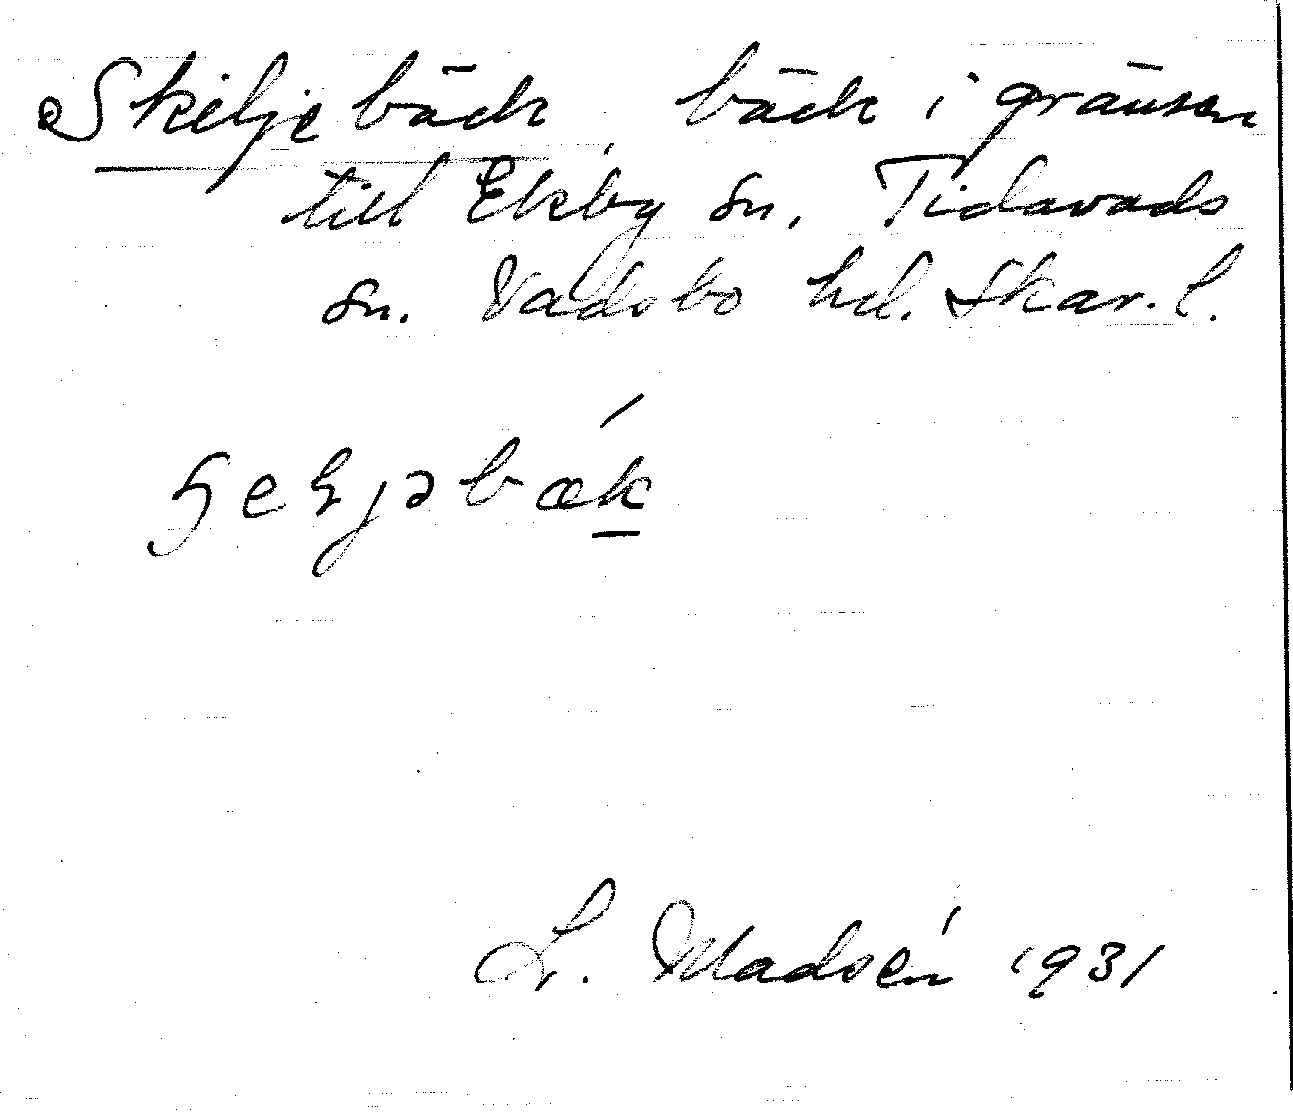 Skiljebäck, bäck i gränsen
till Ekby sn, Tidavads
sn. Vadsbo hd. Skar. l.
L. Madsén 1931